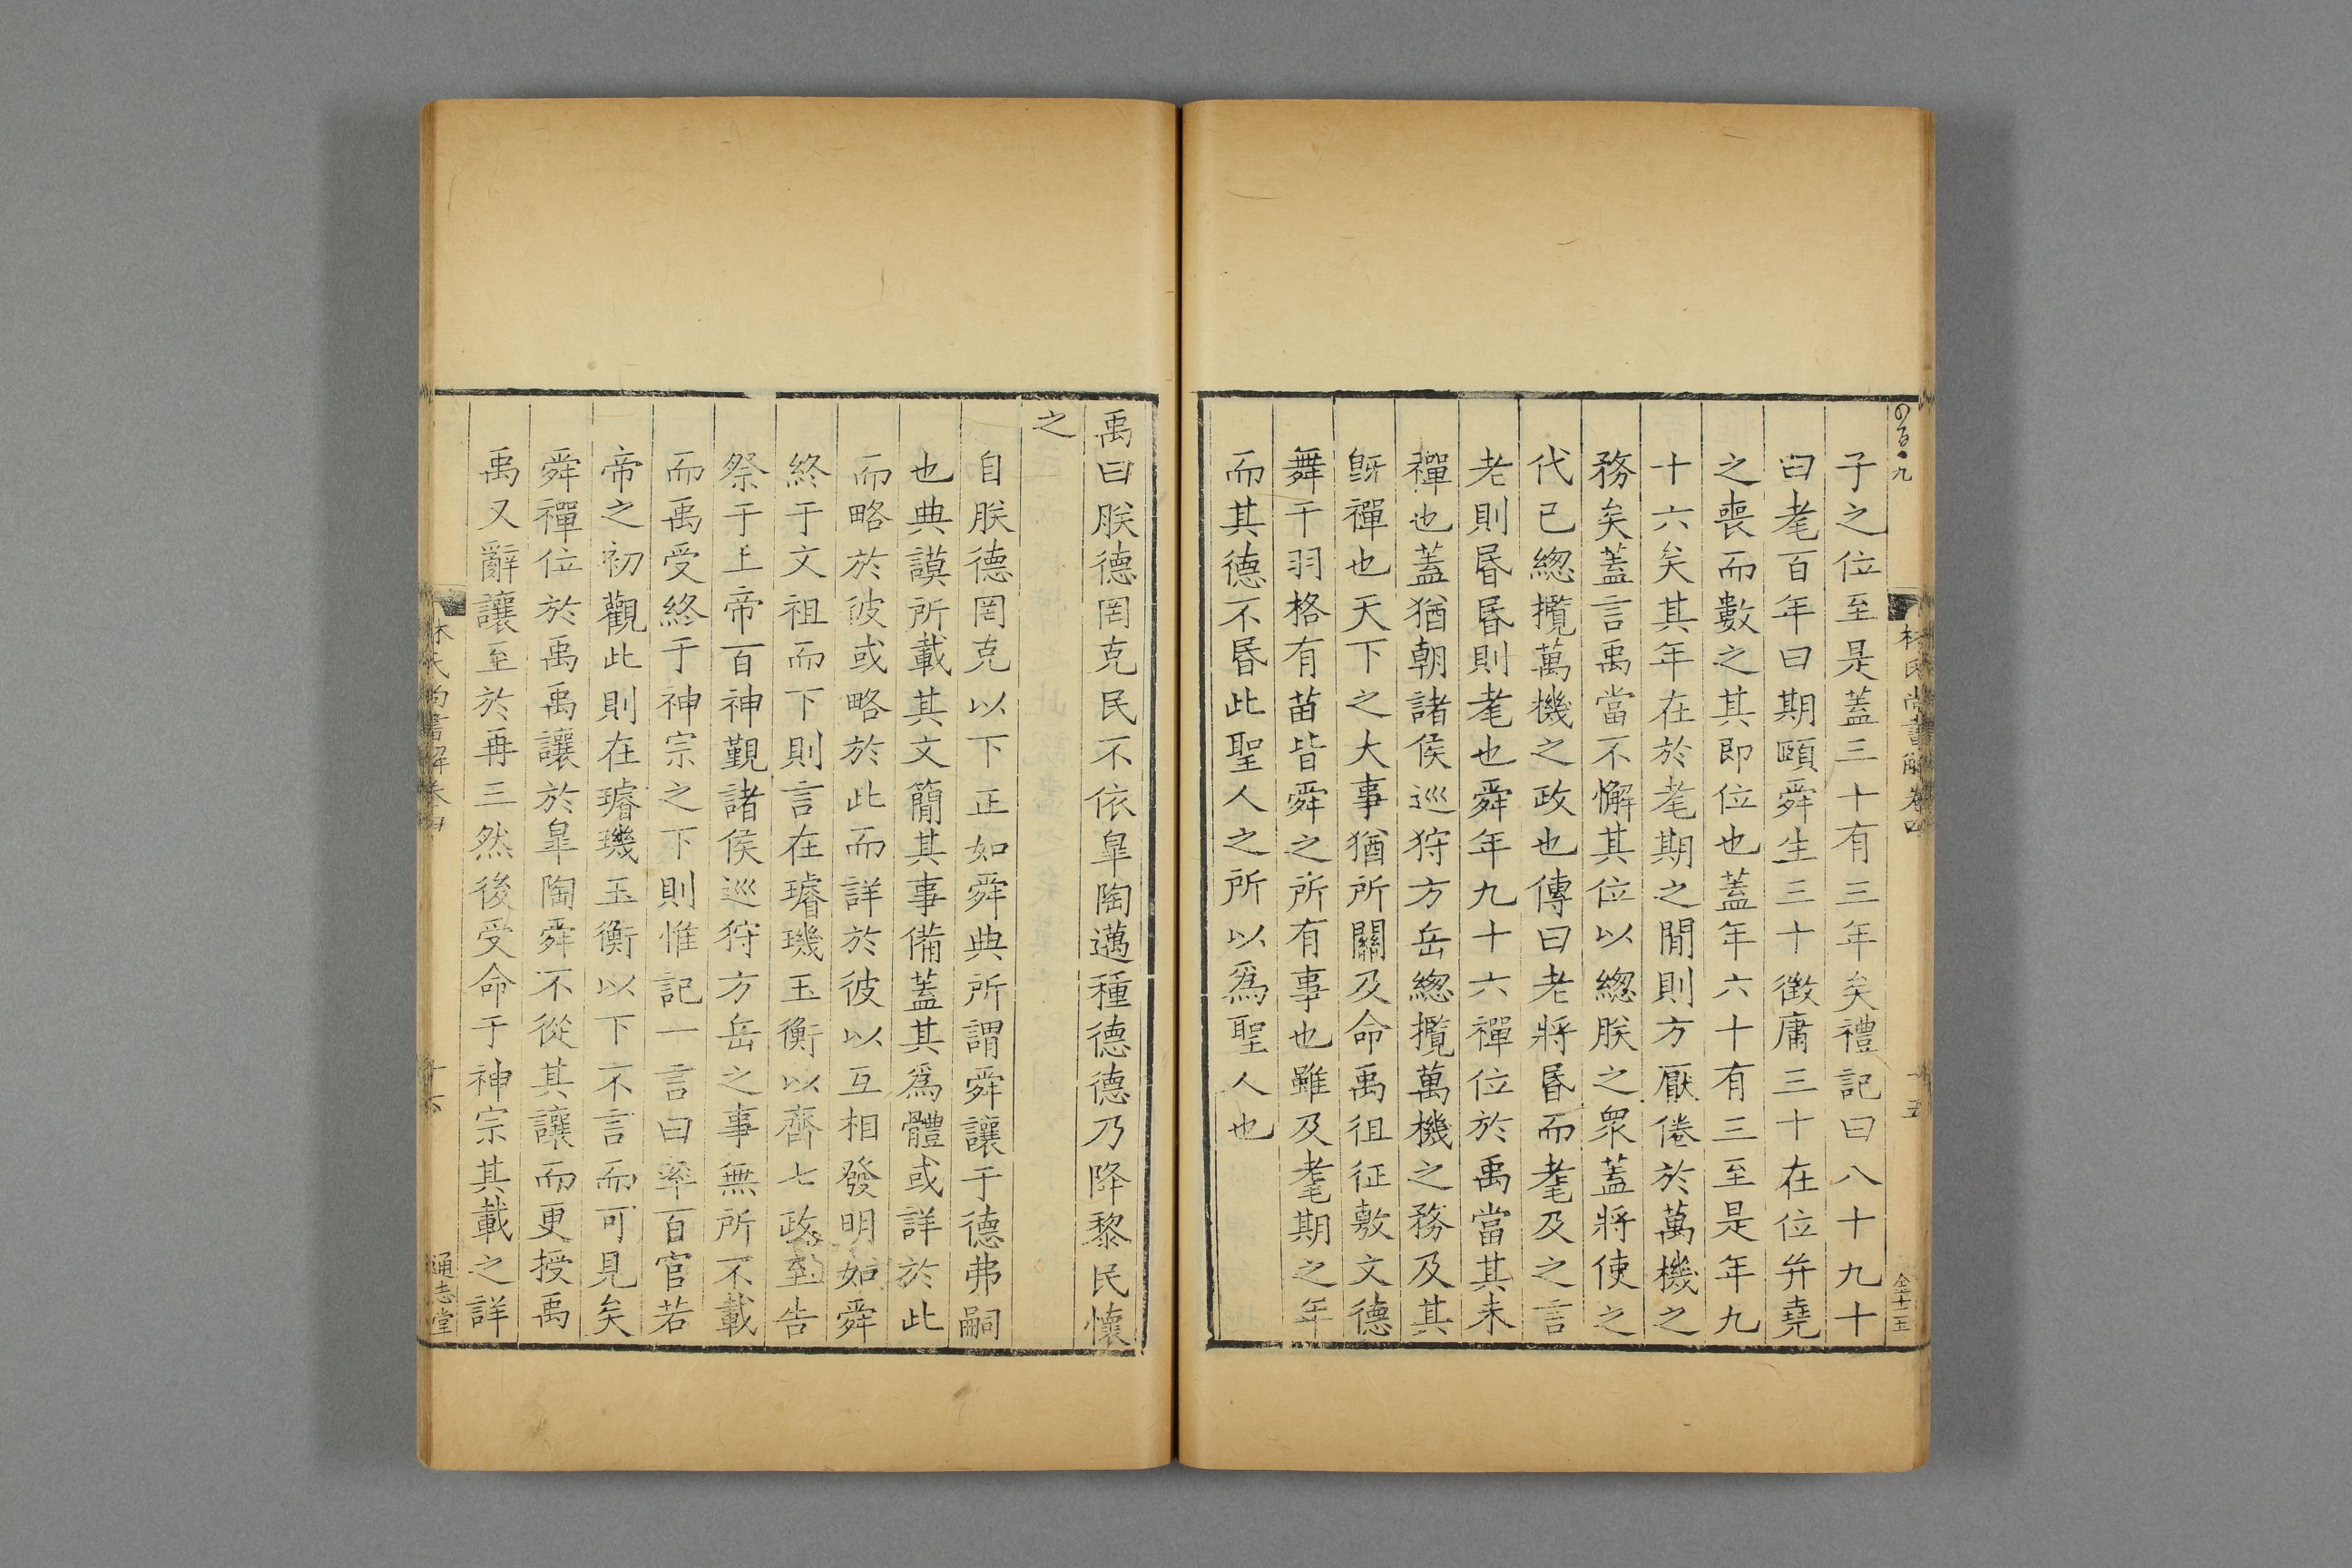 林氏尚書解卷四
十五
子之位至是蓋三十有三年矣禮記曰八十九十
曰耄百年曰期頤舜生三十徵庸三十在位并堯
之喪而數之其即位也蓋年六十有三至是年九
十六矣其年在於耄期之閒則方厭倦於萬機之
務矣蓋言禹當不懈其位以緫朕之眾蓋將使之
代已緫攬萬機之政也傳曰老將昬而耄及之言
老則昬昬則耄也舜年九十六禪位於禹當其未
禪也蓋猶朝諸侯巡狩方岳緫攬萬機之務及其
旣禪也天下之大事猶所關及命禹徂征敷文德
舞干羽格有苗皆舜之所有事也雖及耄期之年
而其德不昬此聖人之所以爲聖人也
禹曰朕德罔克民不依皐陶邁種德德乃降黎民懷
之
自朕德罔克以下正如舜典所謂舜讓于德弗嗣
也典謨所載其文簡其事備蓋其爲體或詳於此
而略於彼或略於此而詳於彼以互相發明如舜
終于文祖而下則言在璿璣玉衡以齊七政至告
祭于上帝百神覲諸侯巡狩方岳之事無所不載
而禹受終于神宗之下則惟記一言曰率百官若
帝之初觀此則在璿璣玉衡以下不言而可見矣
舜禪位於禹禹讓於皐陶舜不從其讓而更授禹
禹又辭讓至於再三然後受命于神宗其載之詳
林氏尚書解卷四
十六
通志堂